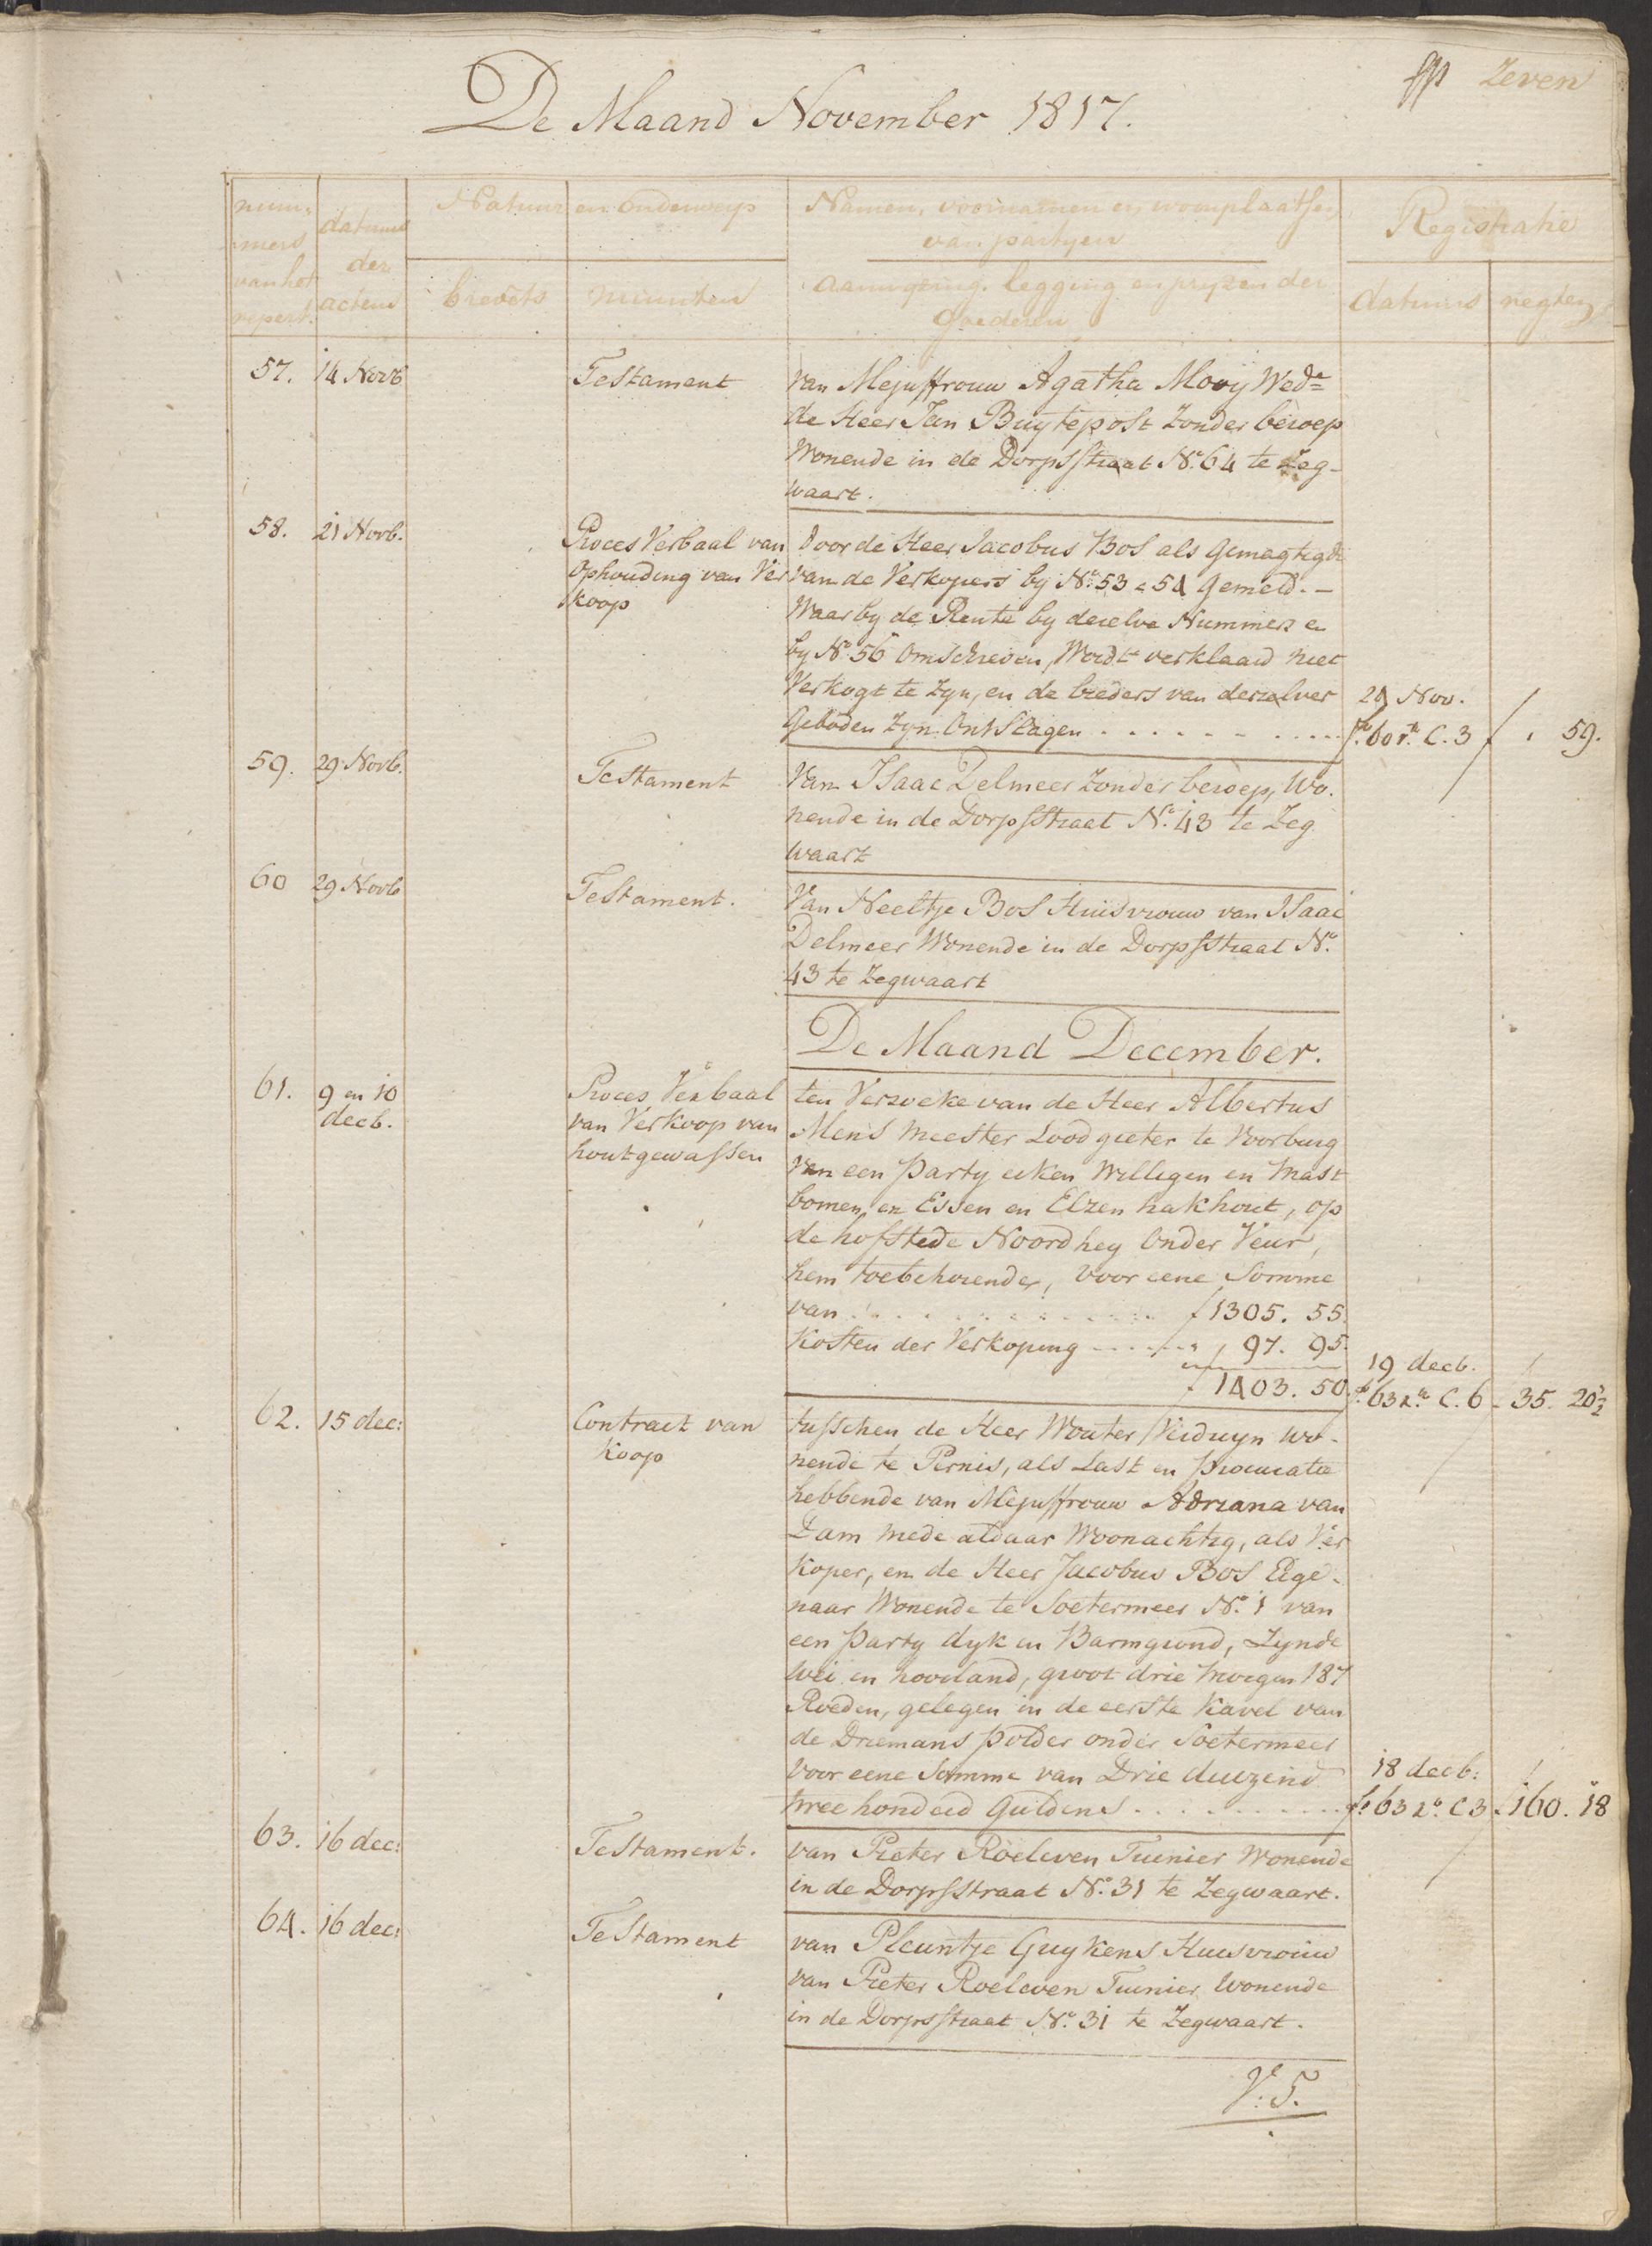 zeven
De Maand November 1817.
num-
mers
van het
repert.
datums
der
actens
Natuur en onderwerp
brevets
minuten
Namen, voornamen en woonplaatsen
van partyen
aanwyzing, legging en pryzen der
Goederen
Registratie
datums
regten
57. 14 Novb
Testament
van Mejuffrouw Agatha Mooy Wed.e
de Heer Jan Buytepost Zonder beroep
Wonende in de Dorpsstraat N.o 64 te Zeg-
waart.
58. 21 Novb.
Proces Verbaal van
Ophouding van Ver
koop
door de Heer Jacobus Bos als Gemagtigde
van de Verkopers by N.o 53 & 54 Gemeld. -
Waarby de Rente by dezelve Nummers en
by N.o 56 Omschreven, Wordt verklaard niet
Verkogt te zyn, en de bieders van derzelver
Geboden Zyn Ontslagen . . . . . . . . . .
24 Nov.
f.o 60 r.o C. 3 f , 59.
59. 29 Novb.
Testament
Van Isaac Delmeer Zonder beroep, Wo.
nende in de Dorpsstraat N.o 43 te Zeg
waart
60 29 Novb
Testament.
Van Neeltje Bos Huisvrouw van Isaac
Delmeer Wonende in de Dorpsstraat N.o
43 te Zegwaart
De Maand December.
61. 9 en 10
decb.
Proces Verbaal
van Verkoop van
houtgewassen
ten Verzoeke van de Heer Albertus
Mens Meester Loodgieter te Voorburg
Van een Party eiken Willigen en Mast
bomen, en Essen en Elzen hakhout, op
de hofstede Noordhey Onder Veur,
hem toebehorende, voor eene Somme
van . . . . . . . . . . f 1305. 55.
Kosten der Verkoping . . . . . " 97. 95.
f 1403. 50.
19 decb.
f.o 63 r.o C. 6 - 35. 20½
62. 15 dec:
Contract van
Koop
tusschen de Heer Wouter Verduyn Wo-
nende te Pernis, als Last en procuratie
hebbende van Mejuffrouw Adriana van
Dam mede aldaar Woonachtig, als Ver
koper, en de Heer Jacobus Bos Eige-
naar Wonende te Soetermeer N.o 1 van
een Party dyk en Barmgrond, Zynde
Wei en hooiland, groot drie morgen 187
Roeden, gelegen in de eerste Kavel van
de Driemans polder onder Soetermeer
Voor eene Somme van Drie duizend
twee honderd Guldens . . . . . . . . . .
18 decb:
f.o 63 r.o C 3 f 160. 18
63. 16 dec:
Testament.
van Pieter Roeleven Tuinier Wonende
in de Dorpsstraat N.o 31 te Zegwaart.
64. 16 dec:
Testament
van Pleuntje Guykens Huisvrouw
van Pieter Roeleven Tuinier, Wonende
in de Dorpsstraat N.o 31 te Zegwaart.
V. T.